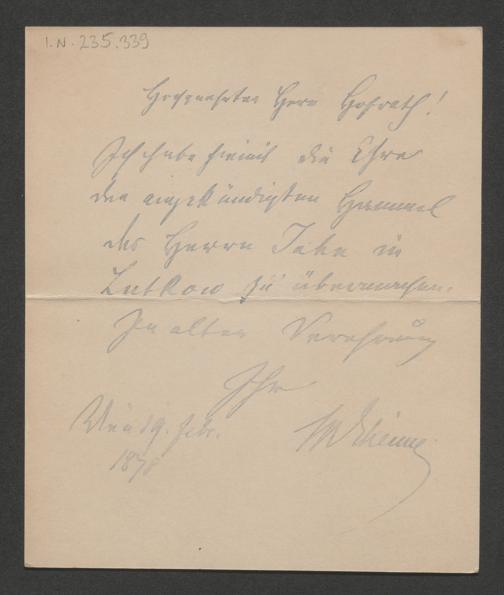 I.N. 235.339
Hochgeehrter Herr Hofrath!
Ich habe hiemit die Ehre
den angekündigten Hammel
des Herrn in
zu übermachen.
In alter Verehrung
Ihr
Wien 19. Febr.
187